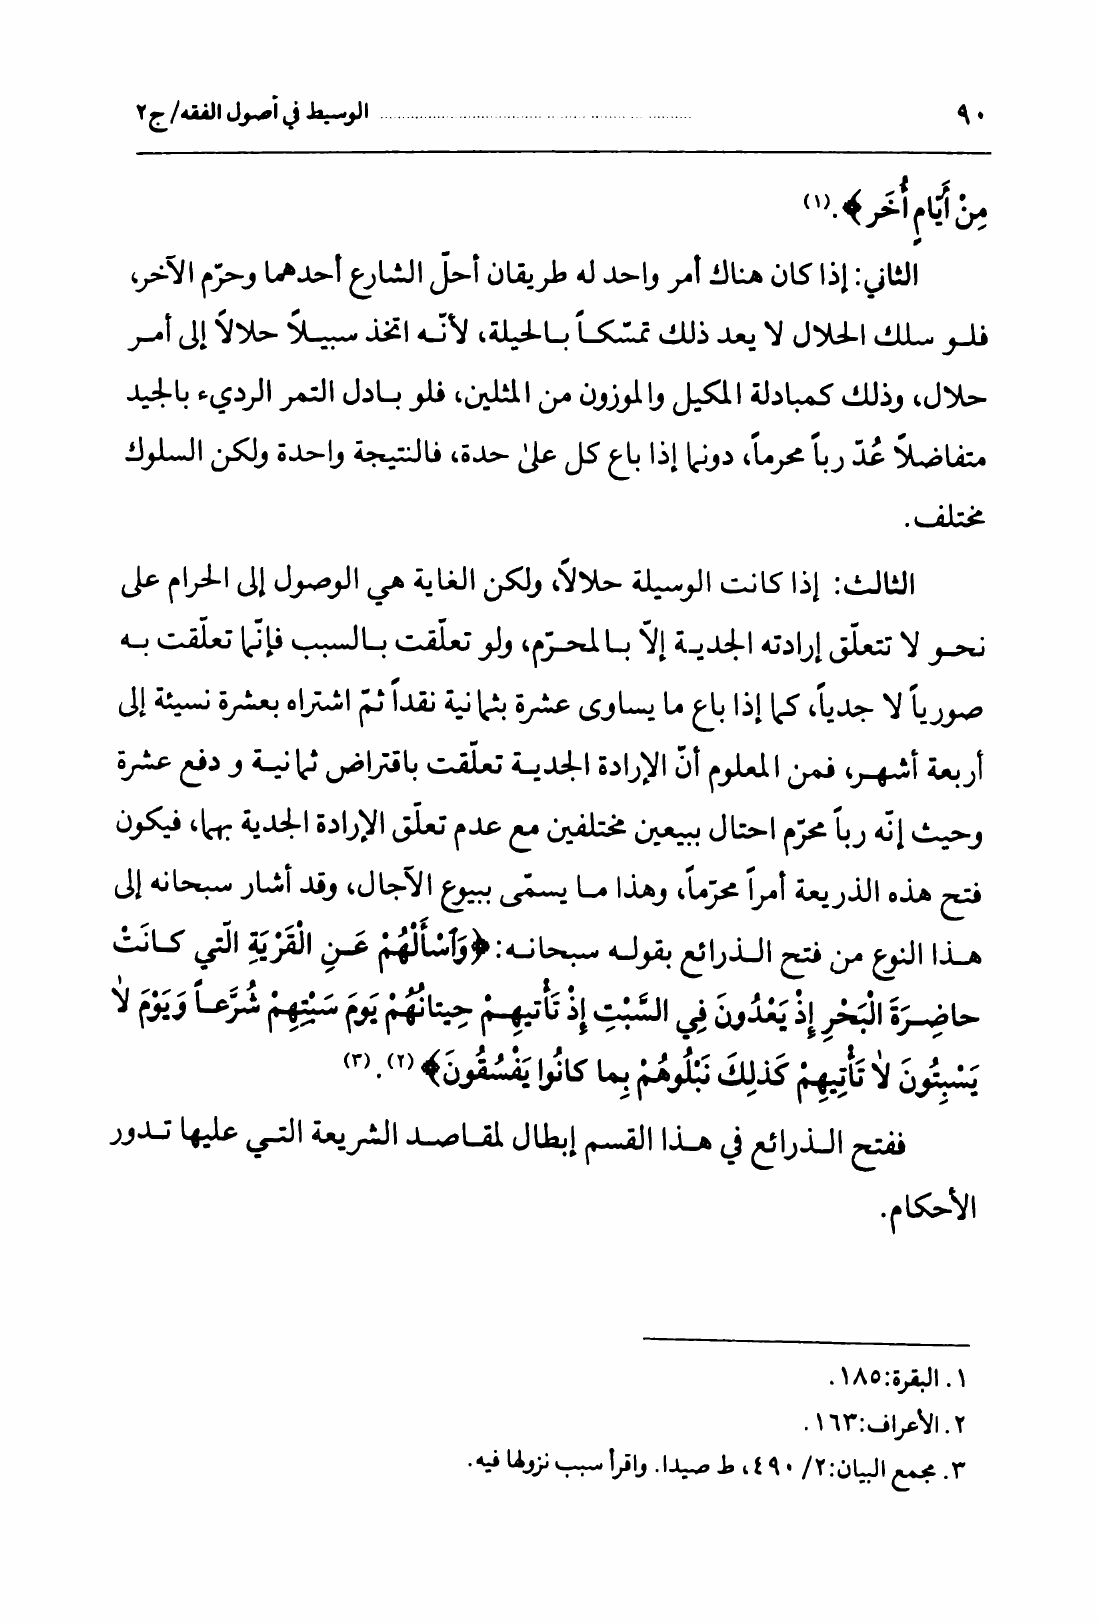 ٩٠ ........ الوسيط في أصول الفقه/ ج٢
مِنْ أَيّامٍ أُخَر﴾.(١)
الثاني: إذا كان هناك أمر واحد له طريقان أحلّ الشارع أحدهما وحرّم الآخر،
فلـو سلك الحلال لا يعد ذلك تمسّكـاً بـالحيلة، لأنّـه اتخذ سبيـلاً حلالاً إلى أمـر
حلال، وذلك كمبادلة المكيل والموزون من المثلين، فلو بـادل التمر الرديء بالجيد
متفاضـلاً عُدّ رباً محرماً، دونما إذا باع كل علىٰ حدة، فالنتيجة واحدة ولكن السلوك
مختلف.
الثالث: إذا كانت الوسيلة حلالاً، ولكن الغاية هي الوصول إلى الحرام على
نحـو لا تتعلّق إرادته الجديـة إلاّ بـالمحـرّم، ولو تعلّقت بـالسبب فإنّما تعلّقت بـه
صورياً لا جدياً، كما إذا باع ما يساوى عشرة بثمانية نقداً ثمّ اشتراه بعشرة نسيئة إلى
أربعة أشهـر، فمن المعلوم أنّ الإرادة الجديـة تعلّقت باقتراض ثمانيـة و دفع عشرة
وحيث إنّه رباً محرّم احتال ببيعين مختلفين مع عدم تعلّق الإرادة الجدية بهما، فيكون
فتح هذه الذريعة أمراً محرّماً، وهذا مـا يسمّى ببيوع الآجال، وقد أشار سبحانه إلى
هـذا النوع من فتح الـذرائع بقولـه سبحانـه: ﴿وَٱسْأَلْهُمْ عَـنِ الْقَرْيَةِ الّتي كـانَتْ
حاضِـرَةَ الْبَحْرِ إِذْ يَعْدُونَ فِي السَّبْتِ إِذْ تَأْتيهِـمْ حِيتانُهُمْ يَومَ سَبْتِهِمْ شُرَّعـاً وَيَوْمَ لاٰ
يَسْبِتُونَ لاٰ تَأْتِيهِمْ كَذلِكَ نَبْلُوهُمْ بِما كانُوا يَفْسُقُونَ﴾(٢).(٣)
ففتح الـذرائع في هـذا القسم إبطال لمقـاصـد الشريعة التـي عليها تـدور
الأحكام.
١. البقرة:١٨٥.
٢. الأعراف:١٦٣.
٣. مجمع البيان:٢/ ٤٩٠، ط صيدا. واقرأ سبب نزولها فيه.